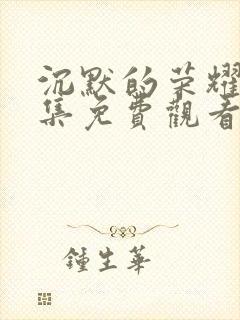 沉默的荣耀
集免費觀看
鍾生華